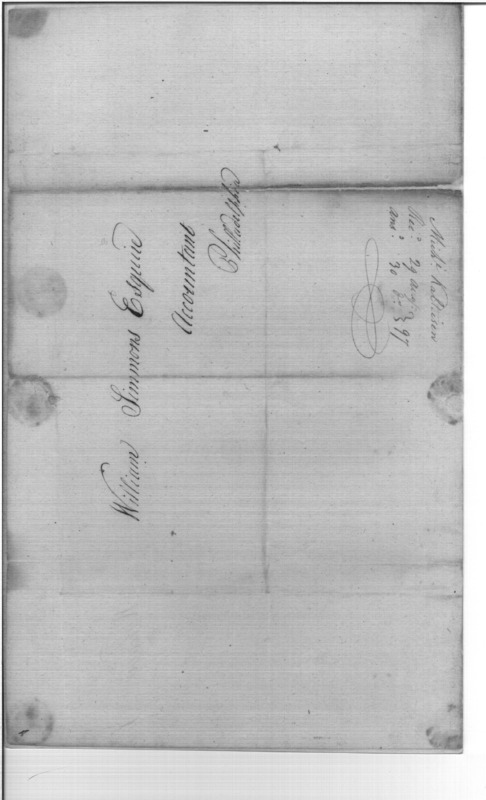 William Simmons Esquire
Accountant
Philadelphia
Mich.l Kalteisen
Rec.d 29 Aug
Ans.d 30 97